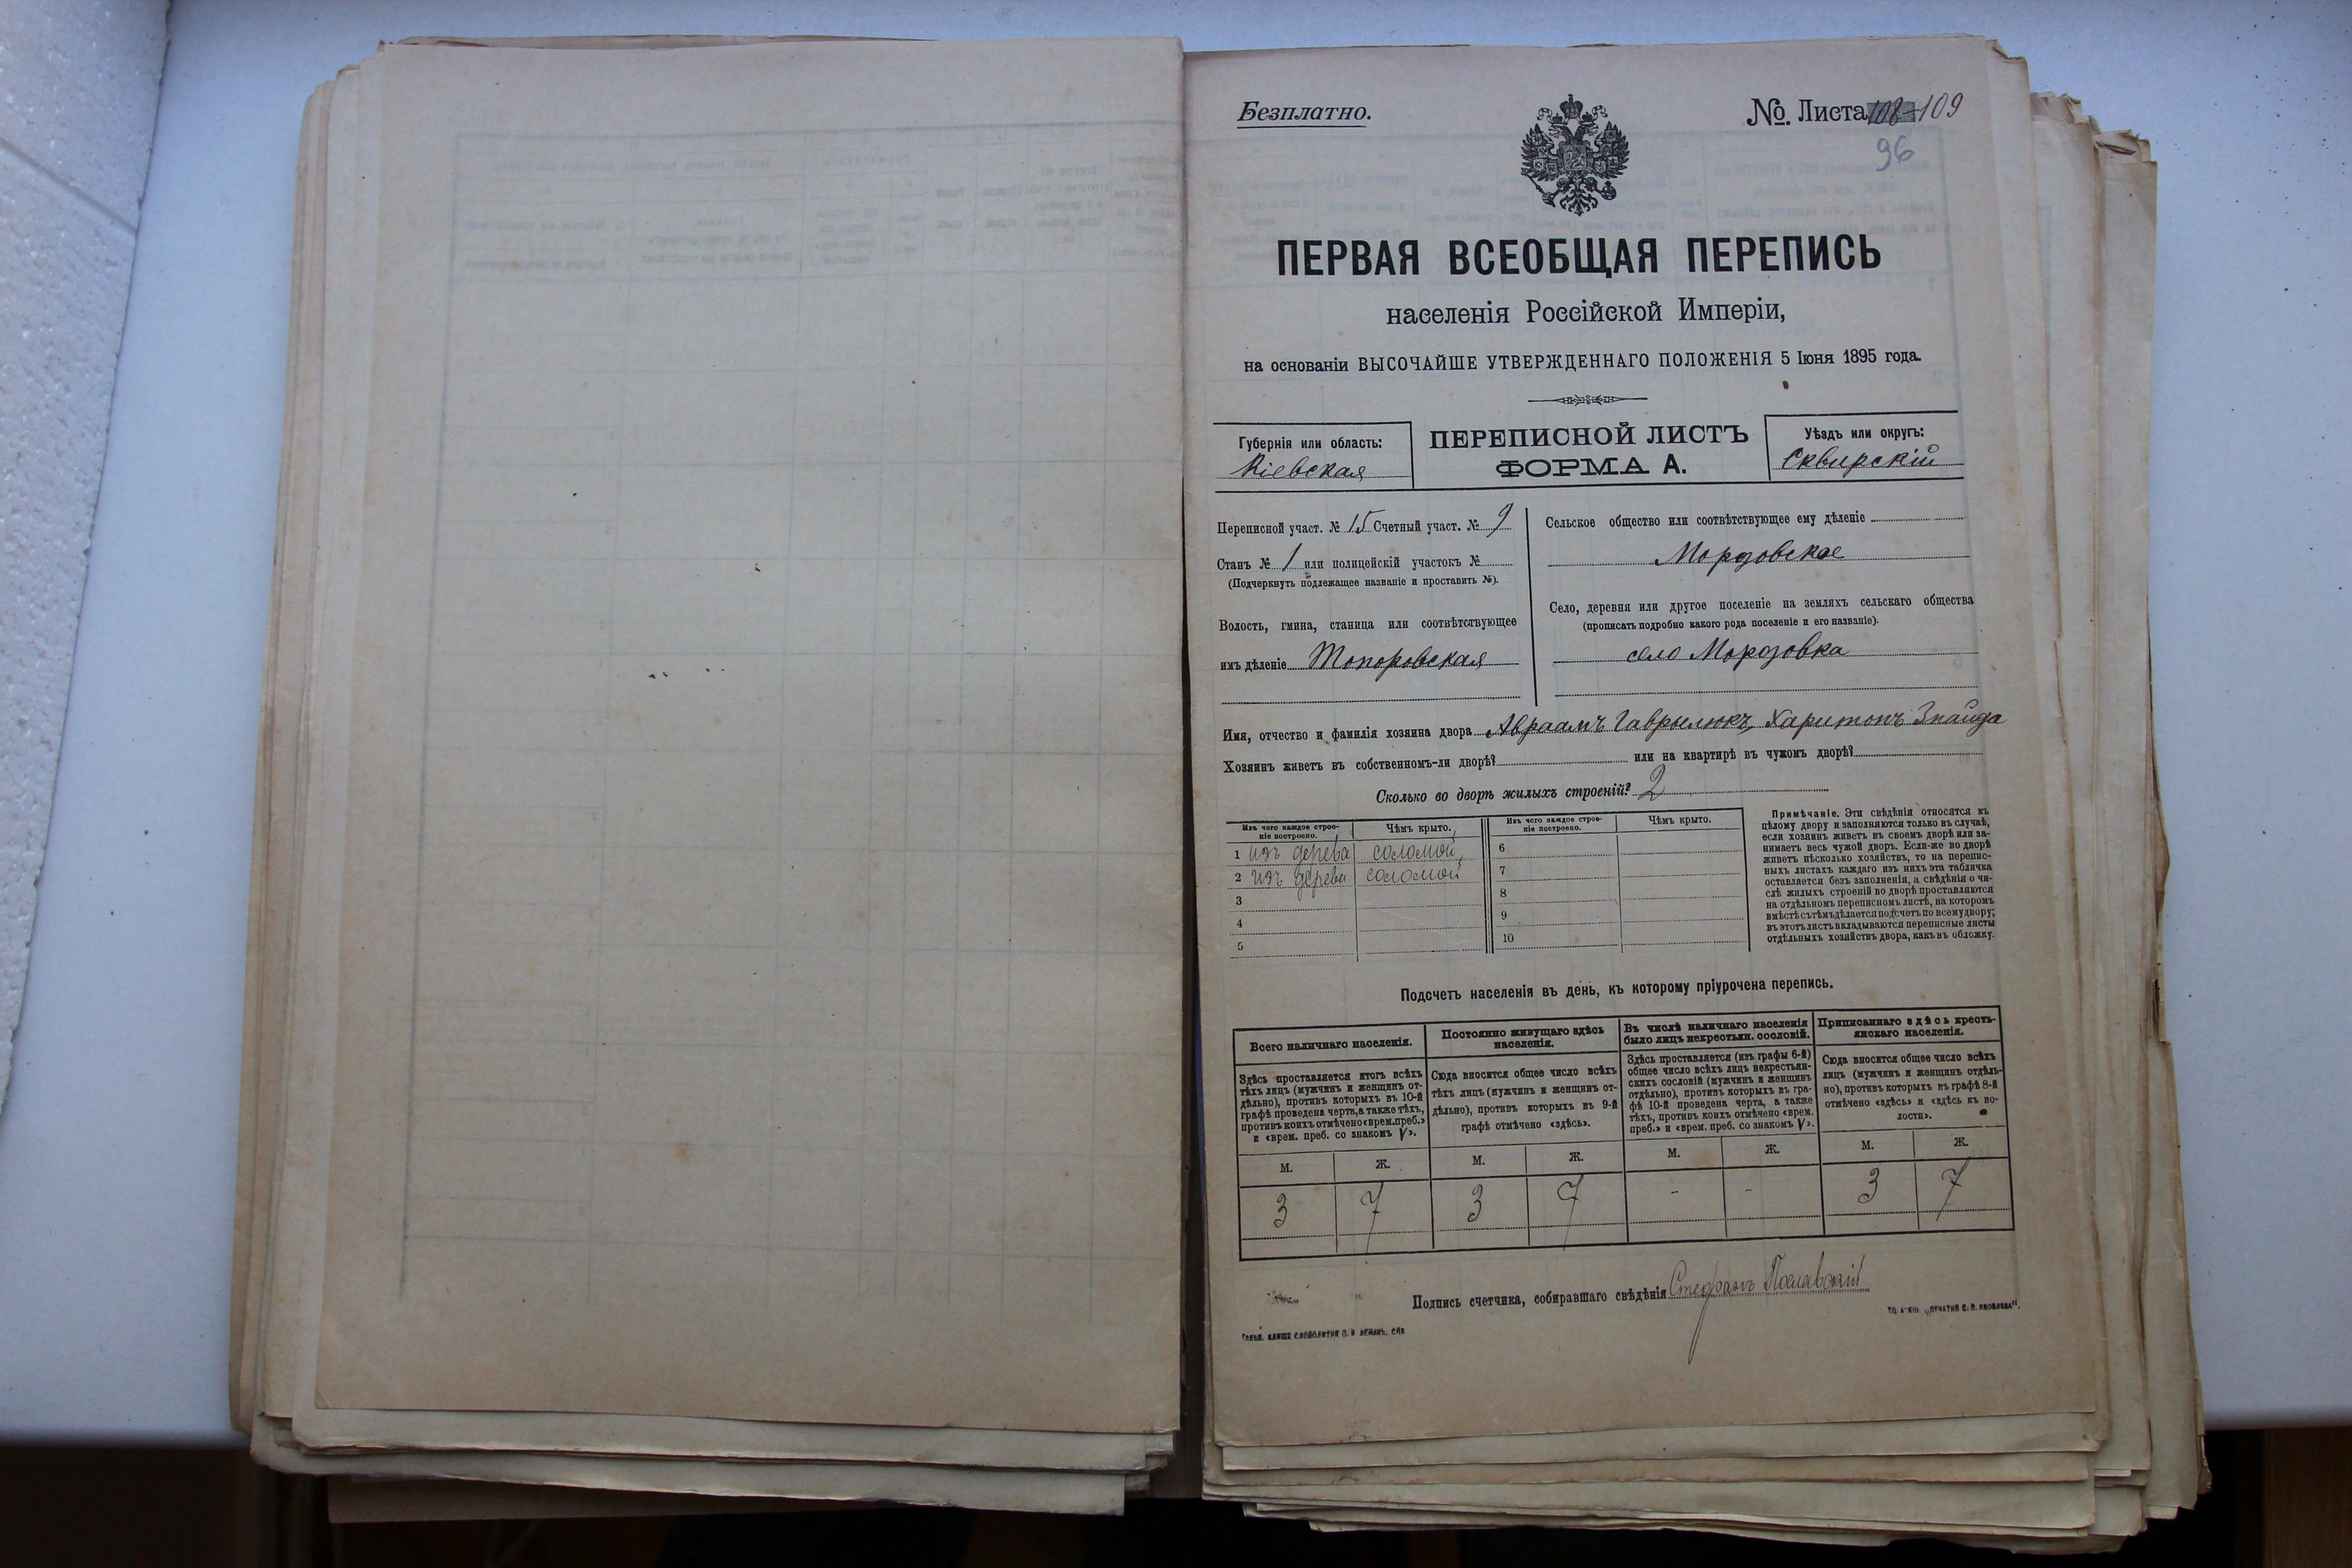 Безплатно.
№ Листа 108-109
96
ПЕРВАЯ ВСЕОБЩАЯ ПЕРЕПИСЬ
населенія Россійской Имперіи,
на основаніи ВЫСОЧАЙШЕ УТВЕРЖДЕННАГО ПОЛОЖЕНІЯ 5 Іюня 1895 года.
Губернія или область:
Кіевская
ПЕРЕПИСНОЙ ЛИСТЪ
ФОРМА А.
Уѣздъ или округъ:
Сквирскій
Переписной участ. № 15 Счетный участ. № 9
Станъ № 1 или полицейскій участокъ №
(Подчеркнуть подлежащее названіе и проставить №).
Волость, гмина, станица или соотвѣтствующее
имъ дѣленіе Топоровская
Сельское общество или соотвѣтствующее ему дѣленіе
Морозовское
Село, деревня или другое поселеніе на земляхъ сельскаго общества
(прописать подробно какого рода поселеніе и его названіе).
село Морозовка
Имя, отчество и фамилія хозяина двора Авраамъ Гаврилюкъ, Харитонъ Знайда
Хозяинъ живетъ въ собственномъ-ли дворѣ? или на квартирѣ въ чужомъ дворѣ?
Сколько во дворѣ жилыхъ строеній? 2
Изъ чего каждое строе-
ніе построено.
Чѣмъ крыто.
1 изъ дерева соломой
2 изъ дерева соломой
3
4
5
Изъ чего каждое строе-
ніе построено.
Чѣмъ крыто.
6
7
8
9
10
Примѣчаніе. Эти свѣдѣнія относятся къ
цѣлому двору и заполняются только въ случаѣ,
если хозяинъ живетъ въ своемъ дворѣ или за-
нимаетъ весь чужой дворъ. Если-же во дворѣ
живетъ нѣсколько хозяйствъ, то на перепис-
ныхъ листахъ каждаго изъ нихъ эта табличка
оставляется безъ заполненія, а свѣдѣнія о чи-
слѣ жилыхъ строеній во дворѣ проставляются
на отдѣльномъ переписномъ листѣ, на которомъ
вмѣстѣ съ тѣмъ дѣлается подсчетъ по всему двору;
въ этотъ листъ вкладываются переписные листы
отдѣльныхъ хозяйствъ двора, какъ въ обложку.
Подсчетъ населенія въ день, къ которому пріурочена перепись.
Всего наличнаго населенія.
Здѣсь проставляется итогъ всѣхъ
тѣхъ лицъ (мужчинъ и женщинъ от-
дѣльно), противъ которыхъ въ 10-й
графѣ проведена черта, а также тѣхъ,
противъ коихъ отмѣчено «врем. преб.»
и «врем. преб. со знакомъ V».
Постоянно живущаго здѣсь
населенія.
Сюда вносится общее число всѣхъ
тѣхъ лицъ (мужчинъ и женщинъ от-
дѣльно), противъ которыхъ въ 9-й
графѣ отмѣчено «здѣсь».
Въ числѣ наличнаго населенія
было лицъ некрестьян. сословій.
Здѣсь проставляется (изъ графы 6-й)
общее число всѣхъ лицъ некрестьян-
скихъ сословій (мужчинъ и женщинъ
отдѣльно), противъ которыхъ въ гра-
фѣ 10-й проведена черта, а также
тѣхъ, противъ коихъ отмѣчено «врем.
преб.» и «врем. преб. со знакомъ V».
Приписаннаго здѣсь кресть-
янскаго населенія.
Сюда вносится общее число всѣхъ
лицъ (мужчинъ и женщинъ отдѣль-
но), противъ которыхъ въ графѣ 8-й
отмѣчено «здѣсь» и «здѣсь къ во-
лости».
М. Ж. М. Ж. М. Ж. М. Ж.
3 7 3 7 - - 3 7
Подпись счетчика, собиравшаго свѣдѣнія Стефанъ